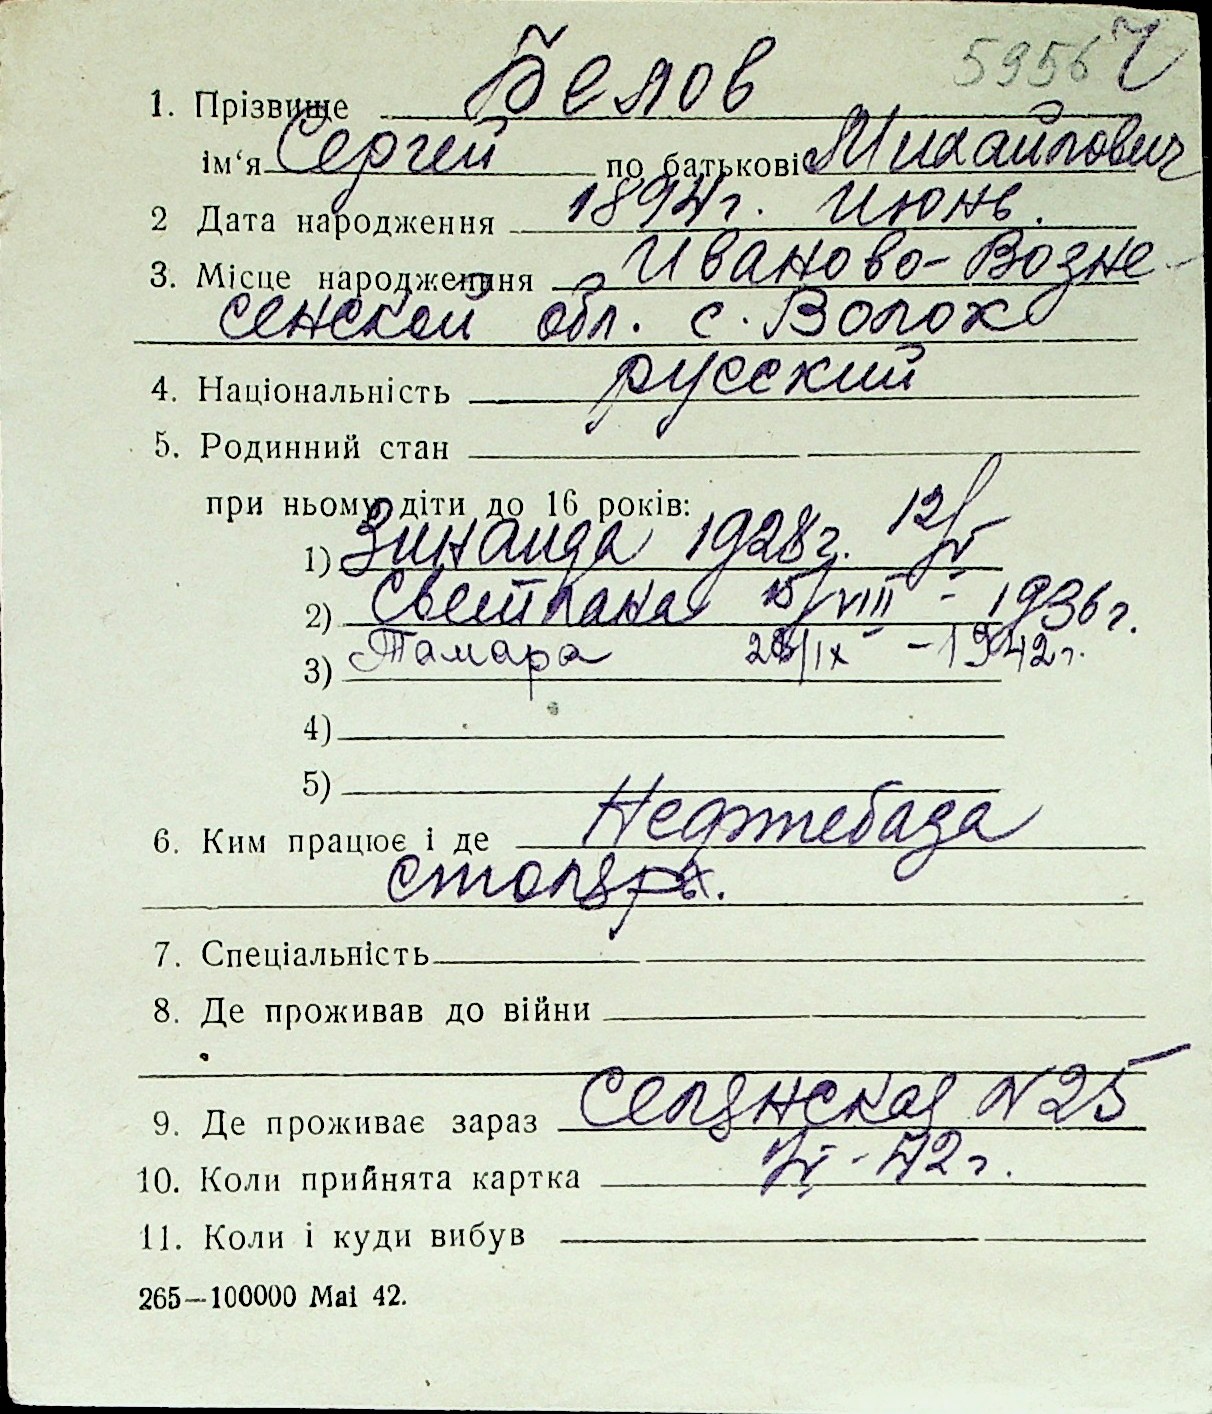 5956
1. Прізвище Белов
ім'я Сергей по батькові Михайлович
2 Дата народження 1894г. Июнь.
3. Місце народження Иваново-Возне-
сенской обл. с. Волох
4. Національність русский
5. Родинний стан
при ньому діти до 16 років:
1) Зинаида 1928г. 12/V
2) Светлана 15/VIII - 1936г.
3) Тамара /IX - 1942г.
4)
5)
6. Ким працює і де Нефтебаза
столяр.
7. Спеціальність
8. Де проживав до війни
9. Де проживає зараз Селянская N 25
10. Коли прийнята картка - 42г.
11. Коли і куди вибув
265—100000 Mai 42.